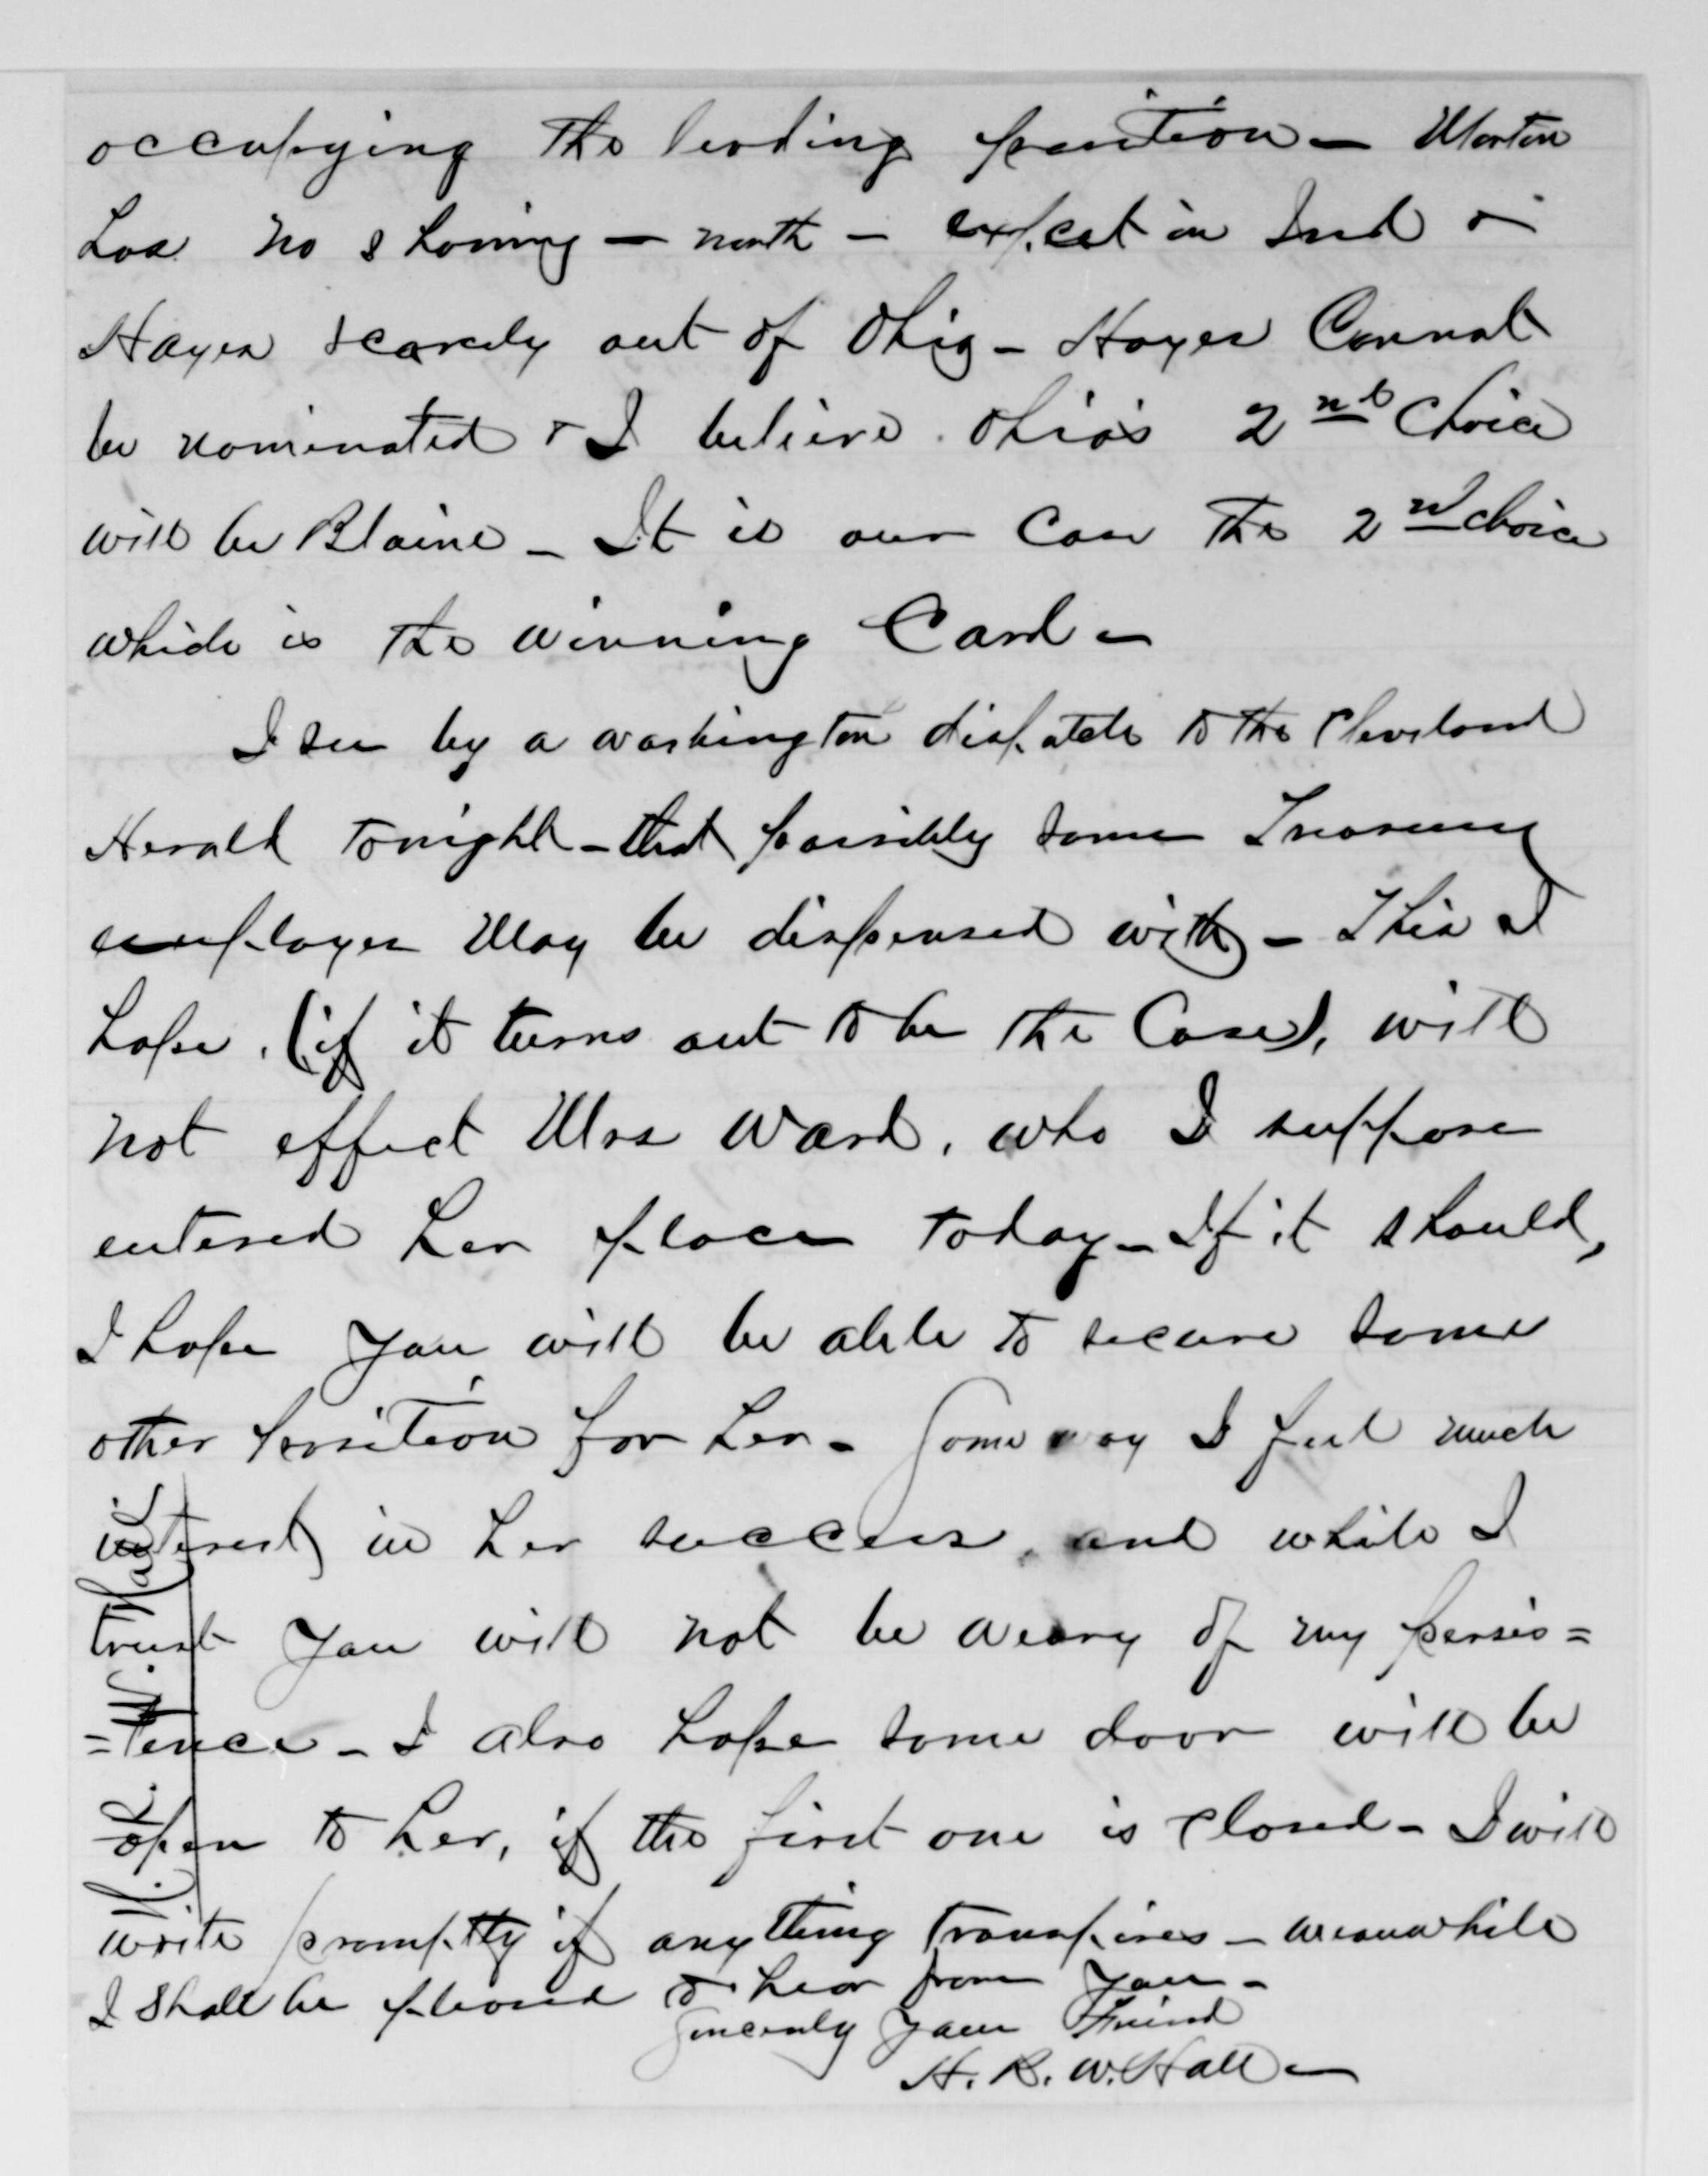 occupying the leading position — Morton
has no showing — north — expect in Ind &
Hayes scarcely out of Ohio — Hayes Cannot
be nominated & I believe Ohio's 2nd Choice
will be Blaine — It is our case the 2nd choice
which is the winning Card —
I see by a washington dispatch to the Cleveland
Herald tonight — that possibly some Treasury
employes May be dispensed with — This I
hope, (if it turns out to be the Case), will
not effect Mrs Ward, who I suppose
entered her place today — If it should,
I hope you will be able to secure some
other position for her — Some way I feel much
interest in her success, and while I
trust you will not be weary of my persis=
=tence — I also hope some door will be
open to her, if the first one is closed — I will
write promptly if anything transpires — meanwhile
I shall be pleased to hear from you —
Sincerely your Friend
H. R. W. Hall —
H. R. W. Hall